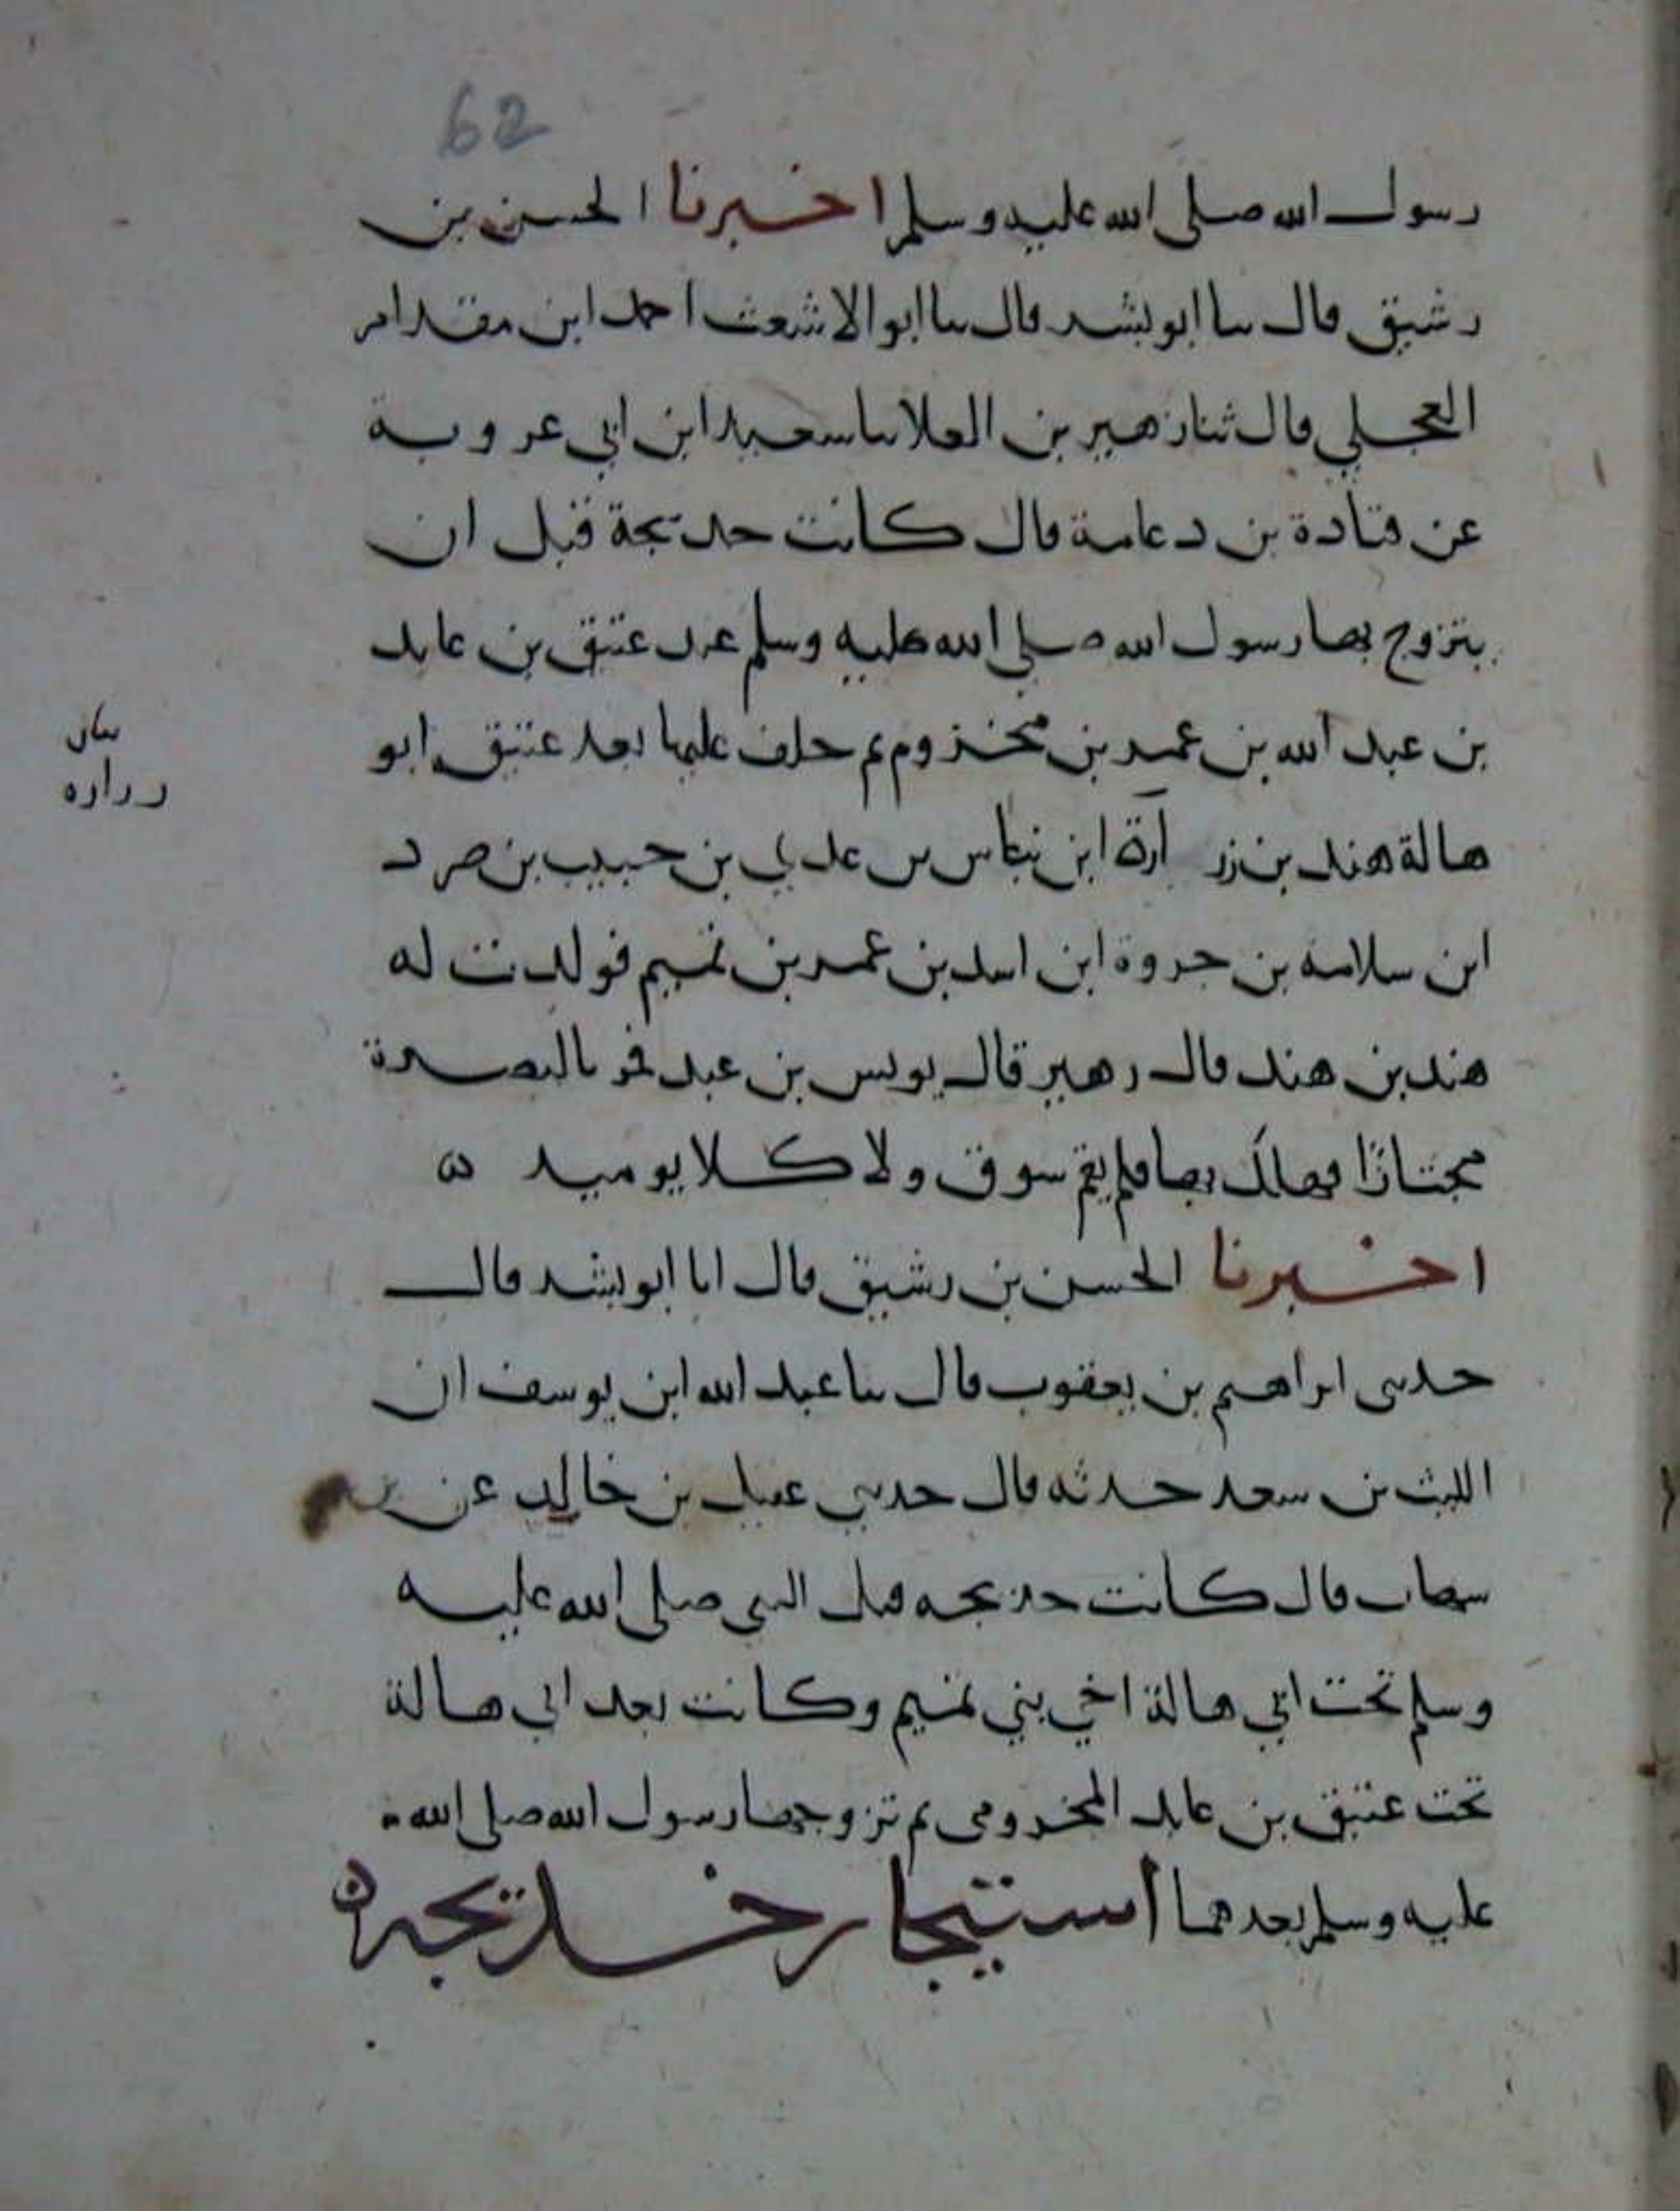 62
رسول الله صلى الله عليه وسلم اخبرنا الحسن بن
رشيق قال سا ابو بشر قال سا ابو الاشعث احمد ابن مقدام
العجلي قال ثنا زهير بن العلا سا سعيد ابن ابي عروبة
عن قتادة بن دعامة قال كانت خديجة قبل ان
يتزوج بها رسول الله صلى الله عليه وسلم عند عتيق بن عابد
بن عبد الله بن عمر بن مخزوم ثم خلف عليها بعد عتيق ابو
هالة هند بن زر ارة ابن نباس بن عدي بن حبيب بن صرد
ابن سلامه بن جروة ابن اسد بن عمر بن تميم فولدت له
هند بن هند قال زهير قال يونس بن عبد بالبصرة
مجتازا فهلك بها فلم يقم سوق ولا كلا يوميد ه
اخبرنا الحسن بن رشيق قال انا ابو بشر قال
حدثني ابراهيم بن يعقوب قال سا عبد الله ابن يوسف ان
الليث بن سعد حدثه قال حدثني عقيل بن خالد عن
سهاب قال كانت خديجه قبل النبي صلى الله عليه
وسلم تحت ابي هالة اخي بني تميم وكانت بعد ابي هالة
تحت عتيق بن عابد المخزومي ثم تزوجها رسول الله صلى الله
عليه وسلم بعدهما استيجار خديجه ه
بيان
زراره